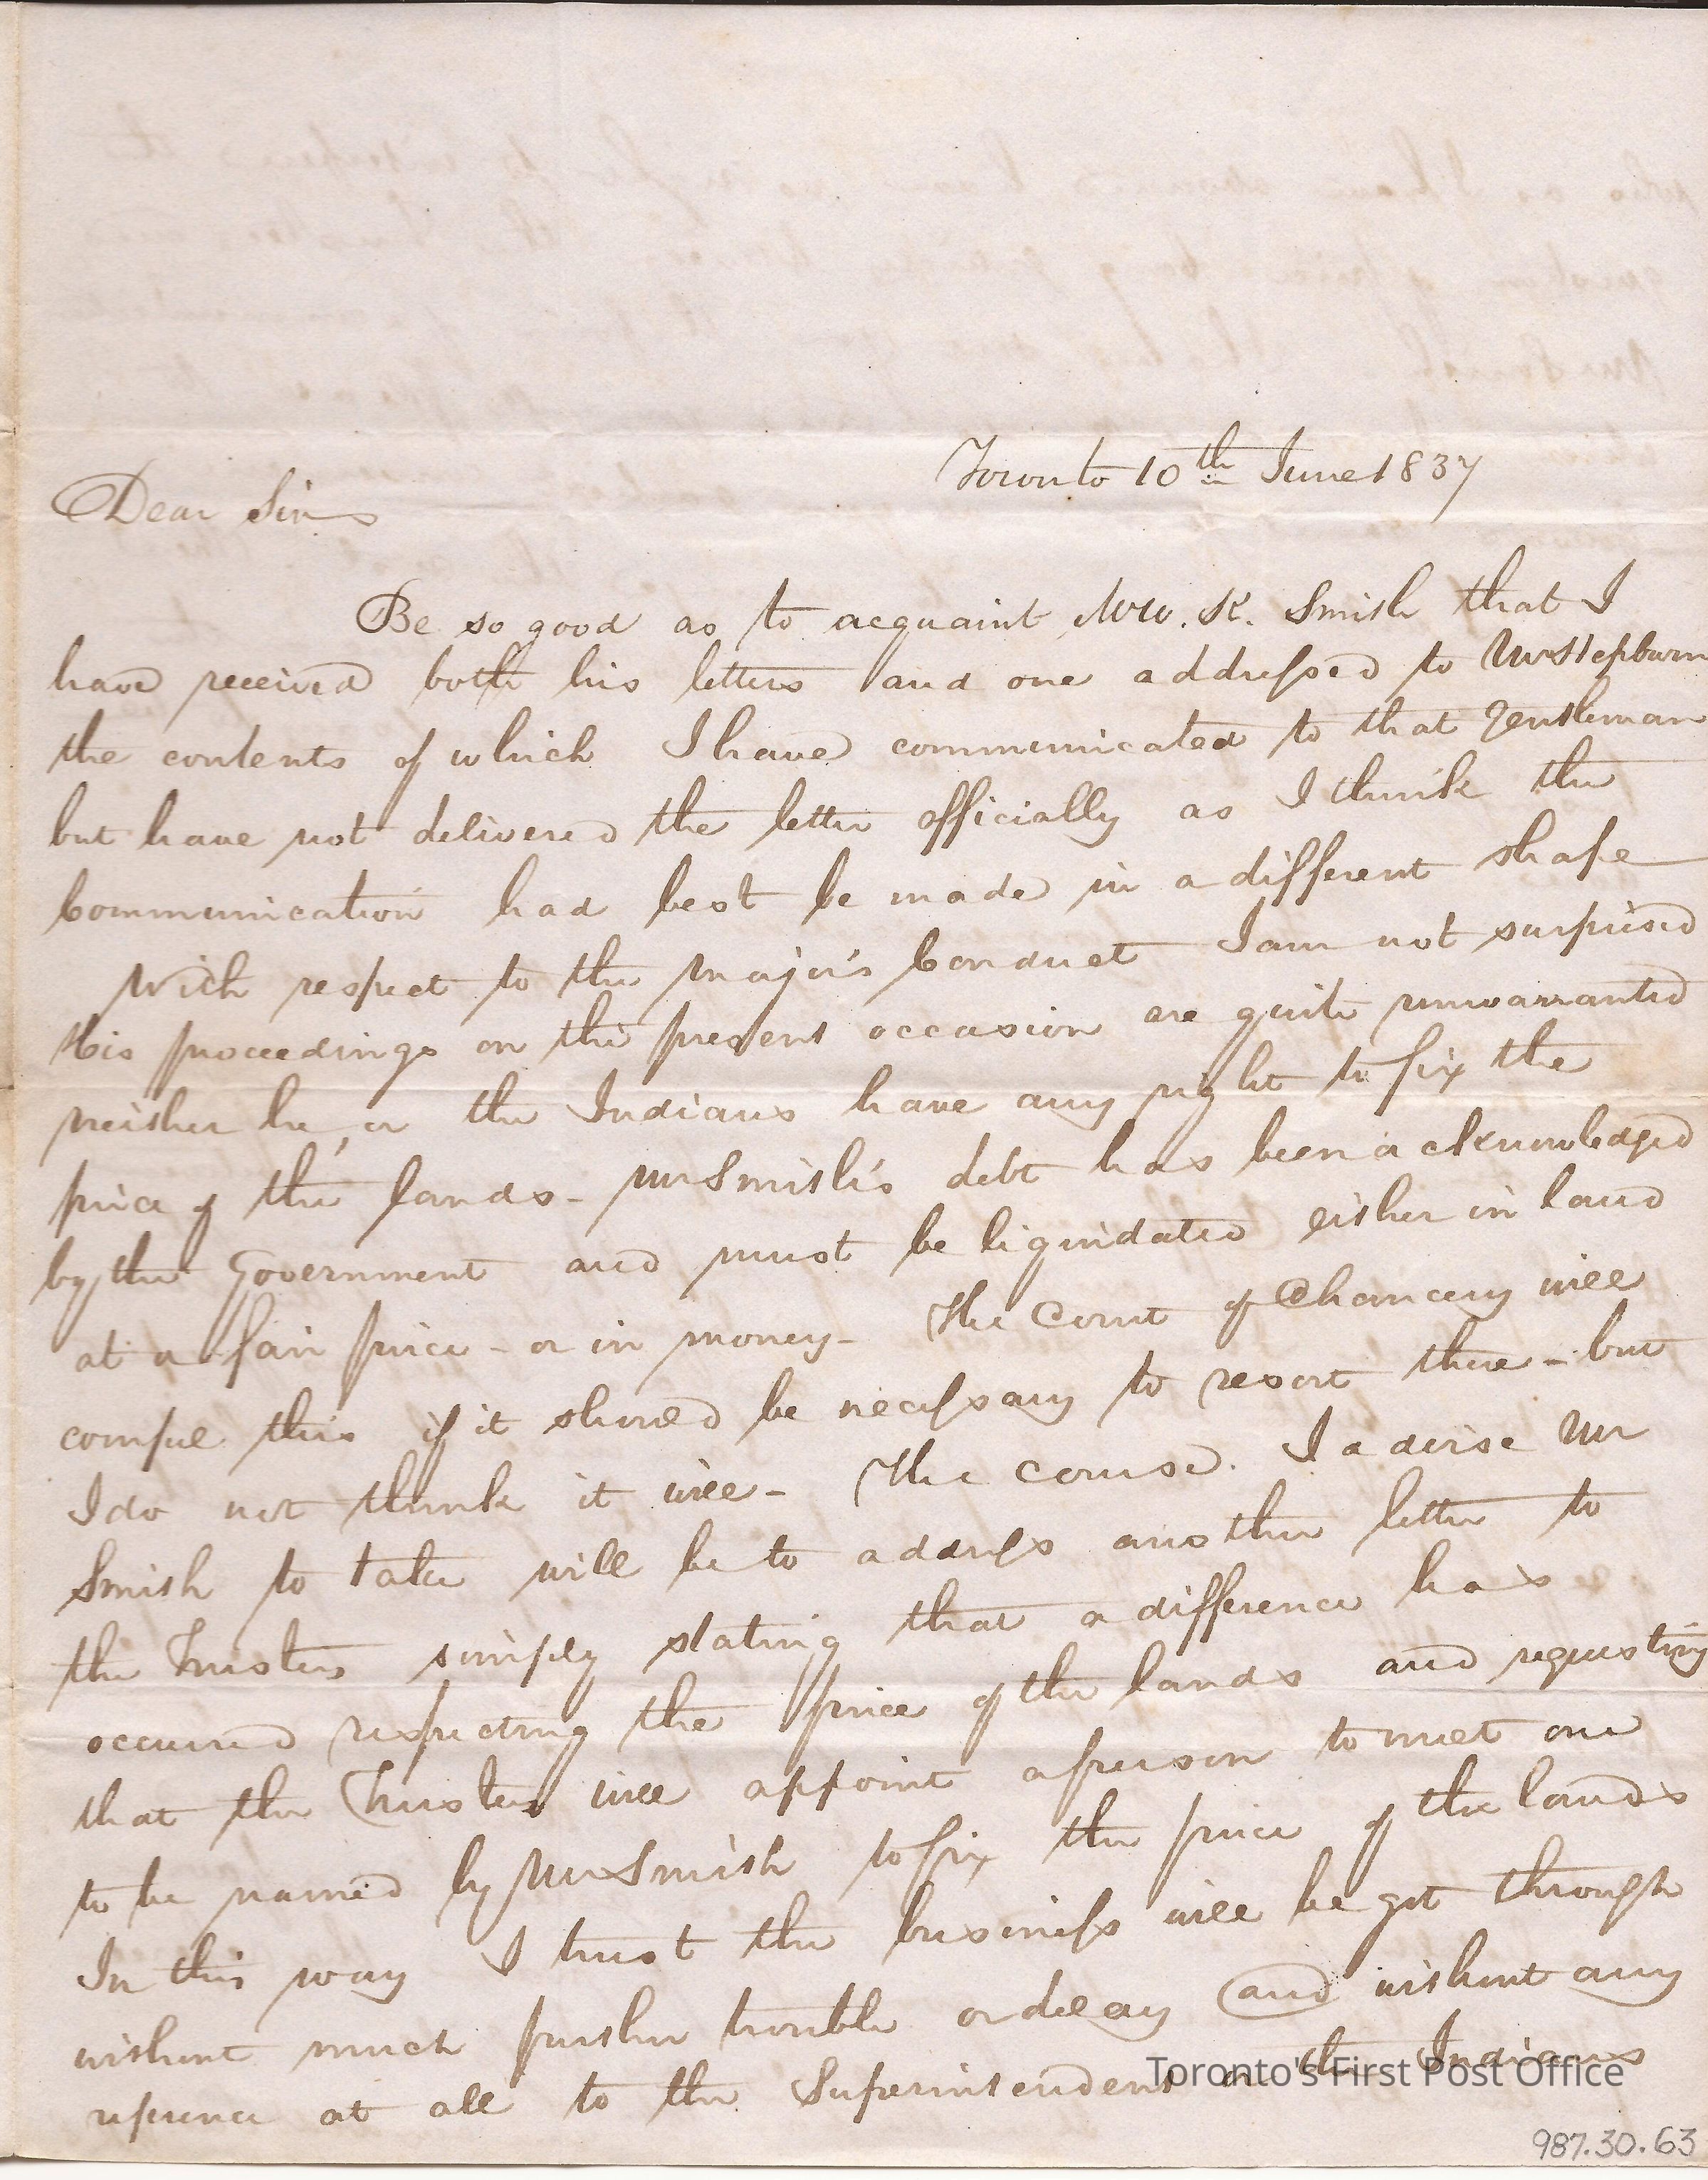 Toronto 10th June 1837
Dear Sir
Be so good as to acquaint Mr W. K. Smith that I
have received both his letters and one addressed to Mr Hepburn
the contents of which I have communicated to that Gentleman
but have not delivered the letter officially as I think the
Communication had best be made in a different shape
With respect to the Major's Conduct I am not surprised
His proceedings on the present occasion are quite unwarranted
neither he, or the Indians have any right to fix the
price of the lands - Mr Smith's debt has been acknowledged
by the Government and must be liquidated either in land
at a fair price - or in money - The Court of Chancery will
compel this if it should be necessary to resort there - but
I do not think it will - The course I advise Mr
Smith to take will be to address another letter to
the Trustees simply stating that a difference has
occurred respecting the price of the lands and requesting
that the Trustees will appoint a person to meet one
to be named by Mr Smith to fix the price of the lands
In this way I trust the business will be got through
without much further trouble or delay and without any
reference at all to the Superintendent or the Indians
Toronto's First Post Office
987.30.63